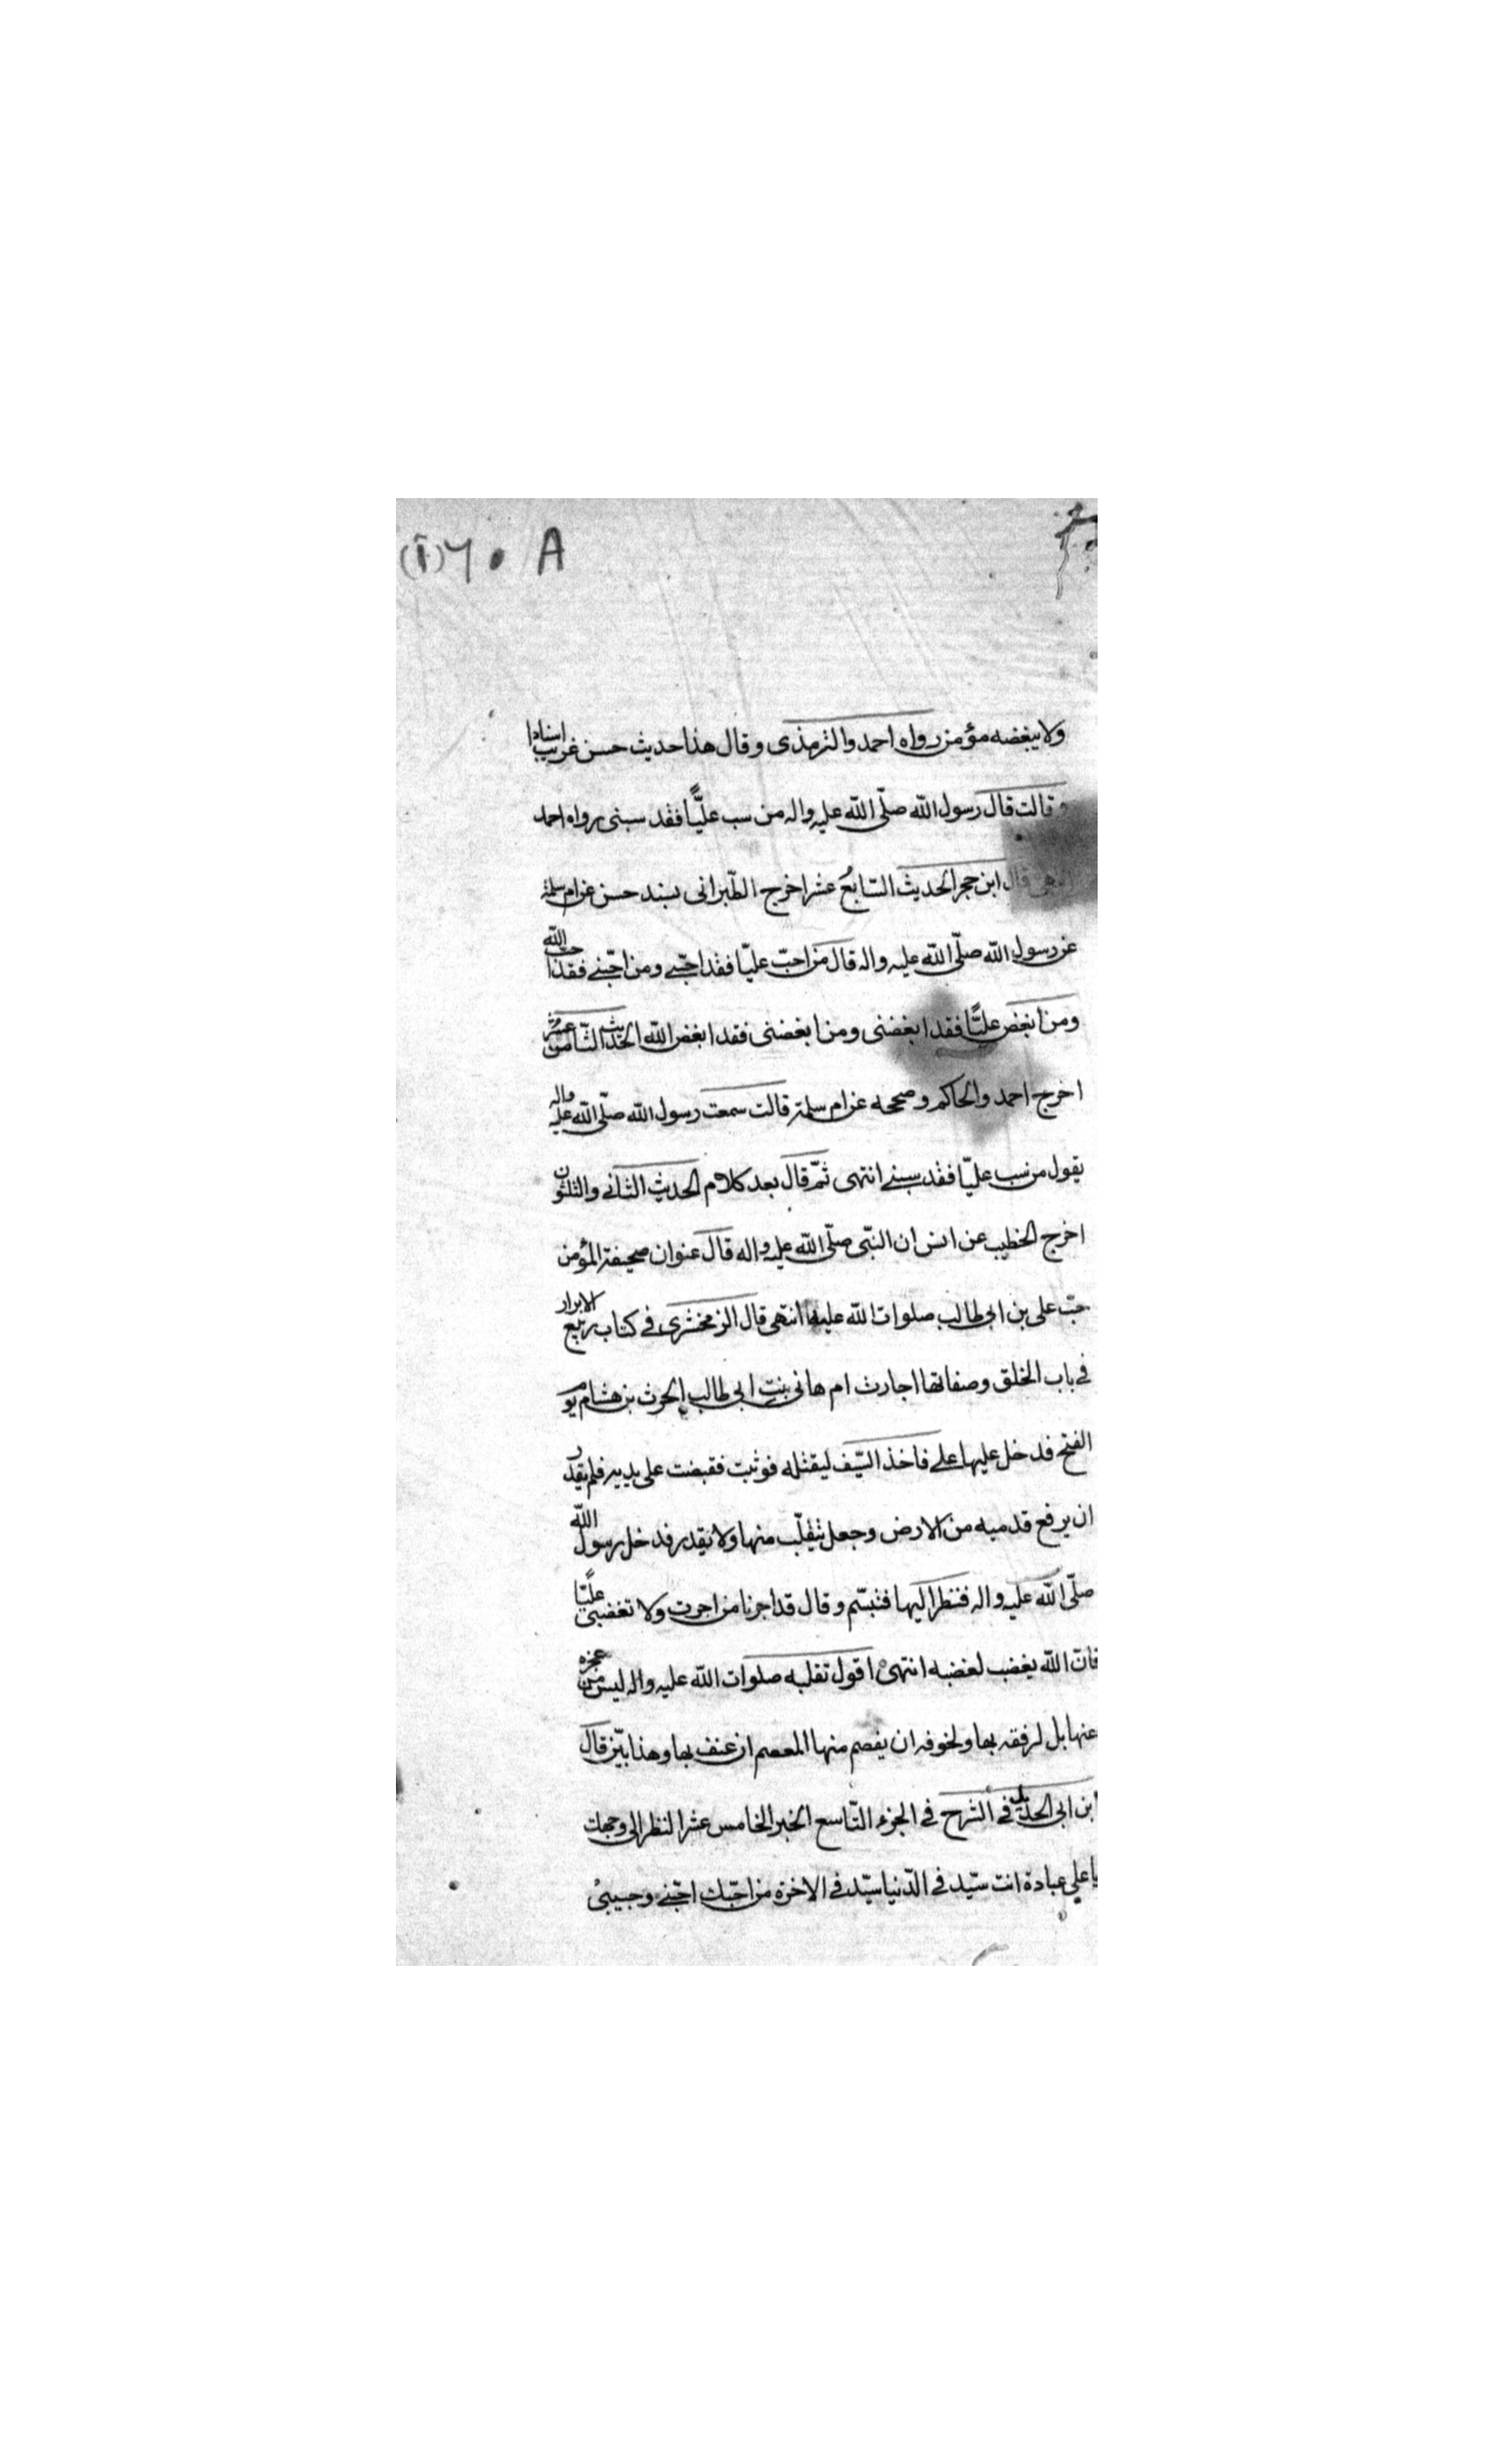 (آ) ٦٠ A
ولا يبغضه مؤمن رواه احمد والترمذى وقال هذا حديث حسن غريب اسنادا
وقالت قال رسول الله صلّى الله عليه واله من سب عليًّا فقد سبنى رواه احمد
قال ابن حجر الحديث السّابعُ عشر اخرج الطّبرانى بسند حسن عن ام سلمة
عن رسول الله صلّى الله عليه واله قال من احبّ عليّا فقد احبّنے ومن احبّنے فقد احب الله
ومن ابغض عليًّا فقد ابغضنى ومن ابغضنى فقد ابغض الله الحديث الثّامن عشر
اخرج احمد والحاكم وصححه عن ام سلمة قالت سمعت رسول الله صلّى الله عليه واله
يقول من سب عليّا فقد سبنے انتهى ثمّ قال بعد كلام الحديث الثانے والثلثون
اخرج الخطيب عن انس ان النبّى صلّى الله عليه واله قال عنوان صحيفة المؤمن
حبّ على بن ابى طالب صلوات الله عليه انتهى قال الزمخشرى فے كتاب ربيع الابرار
فے باب الخلق وصفاتها اجارت ام هانى بنت ابى طالب الحرث بن هشام يوم
الفتح فدخل عليها علے فاخذ السّيف ليقتله فوثبت فقبضت على يديه فلم يقدر
ان يرفع قدميه من الارض وجعل يتفلّب منها ولا يقدر فدخل رسول الله
صلّى الله عليه واله فنظر اليها فتبسّم وقال قد اجرنا من اجرت ولا تغضبى عليًّا
فانّ الله يغضب لغضبه انتهى اقول تفلبه صلوات الله عليه واله ليس من عجزه
عنها بل لرفقه بها ولخوفه ان يفصم منها المعصم ان عنف بها وهذا بيّن قال
ابن ابى الحديد فے الشرح فے الجزء التّاسع الخبر الخامس عشر النظر الى وجهك
يا علي عبادة انت سيّد فے الدّنيا سيّد فے الاخرة من احبّك احبّنے وحبيبى